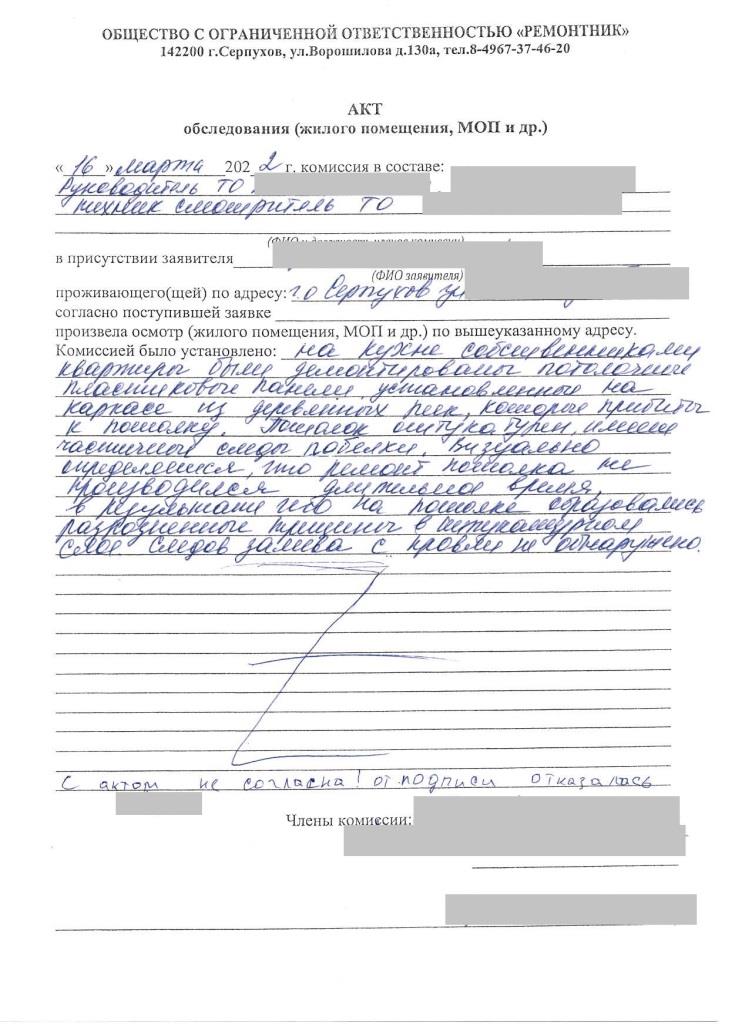 ОБЩЕСТВО С ОГРАНИЧЕННОЙ ОТВЕТСТВЕННОСТЬЮ «РЕМОНТНИК»
142200 г.Серпухов, ул.Ворошилова д.130а, тел.8-4967-37-46-20
АКТ
обследования (жилого помещения, МОП и др.)
« 16 » марта 2022 г. комиссия в составе:
Руководитель ТО
техник смотритель ТО
в присутствии заявителя
(ФИО заявителя)
проживающего(щей) по адресу: г.о Серпухов ул
согласно поступившей заявке
произвела осмотр (жилого помещения, МОП и др.) по вышеуказанному адресу.
Комиссией было установлено: на кухне собственниками
квартиры были демонтированы потолочные
пластиковые панели, установленные на
каркасе из деревянных реек, которые прибиты
к потолку. Потолок оштукатурен, имеет
частичные следы побелки. Визуально
определяется, что ремонт потолка не
производился длительное время,
в результате чего на потолке образовались
разрозненные трещины в штукатурном
слое следов залива с кровли не обнаружено.
С актом не согласна! от подписи отказалась
Члены комиссии: